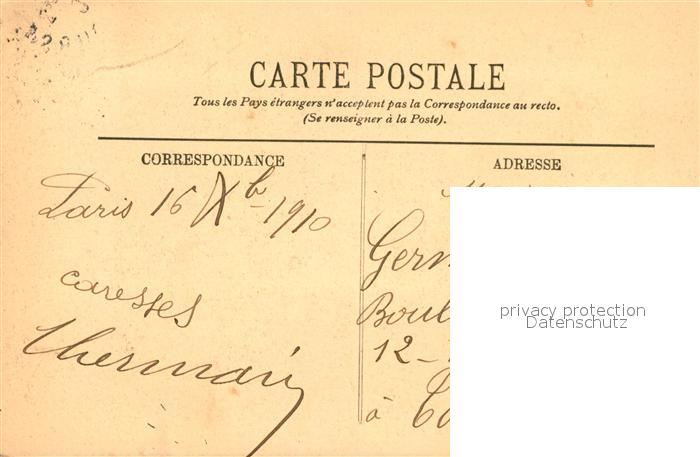 CARTE POSTALE
Tous les Pays étrangers n'acceptent pas la Correspondance au recto.
(Se renseigner à la Poste).
CORRESPONDANCE
ADRESSE
Paris 16 Xb 1910
caresses
Germ
Boul
12 -
à
privacy protection
Datenschutz